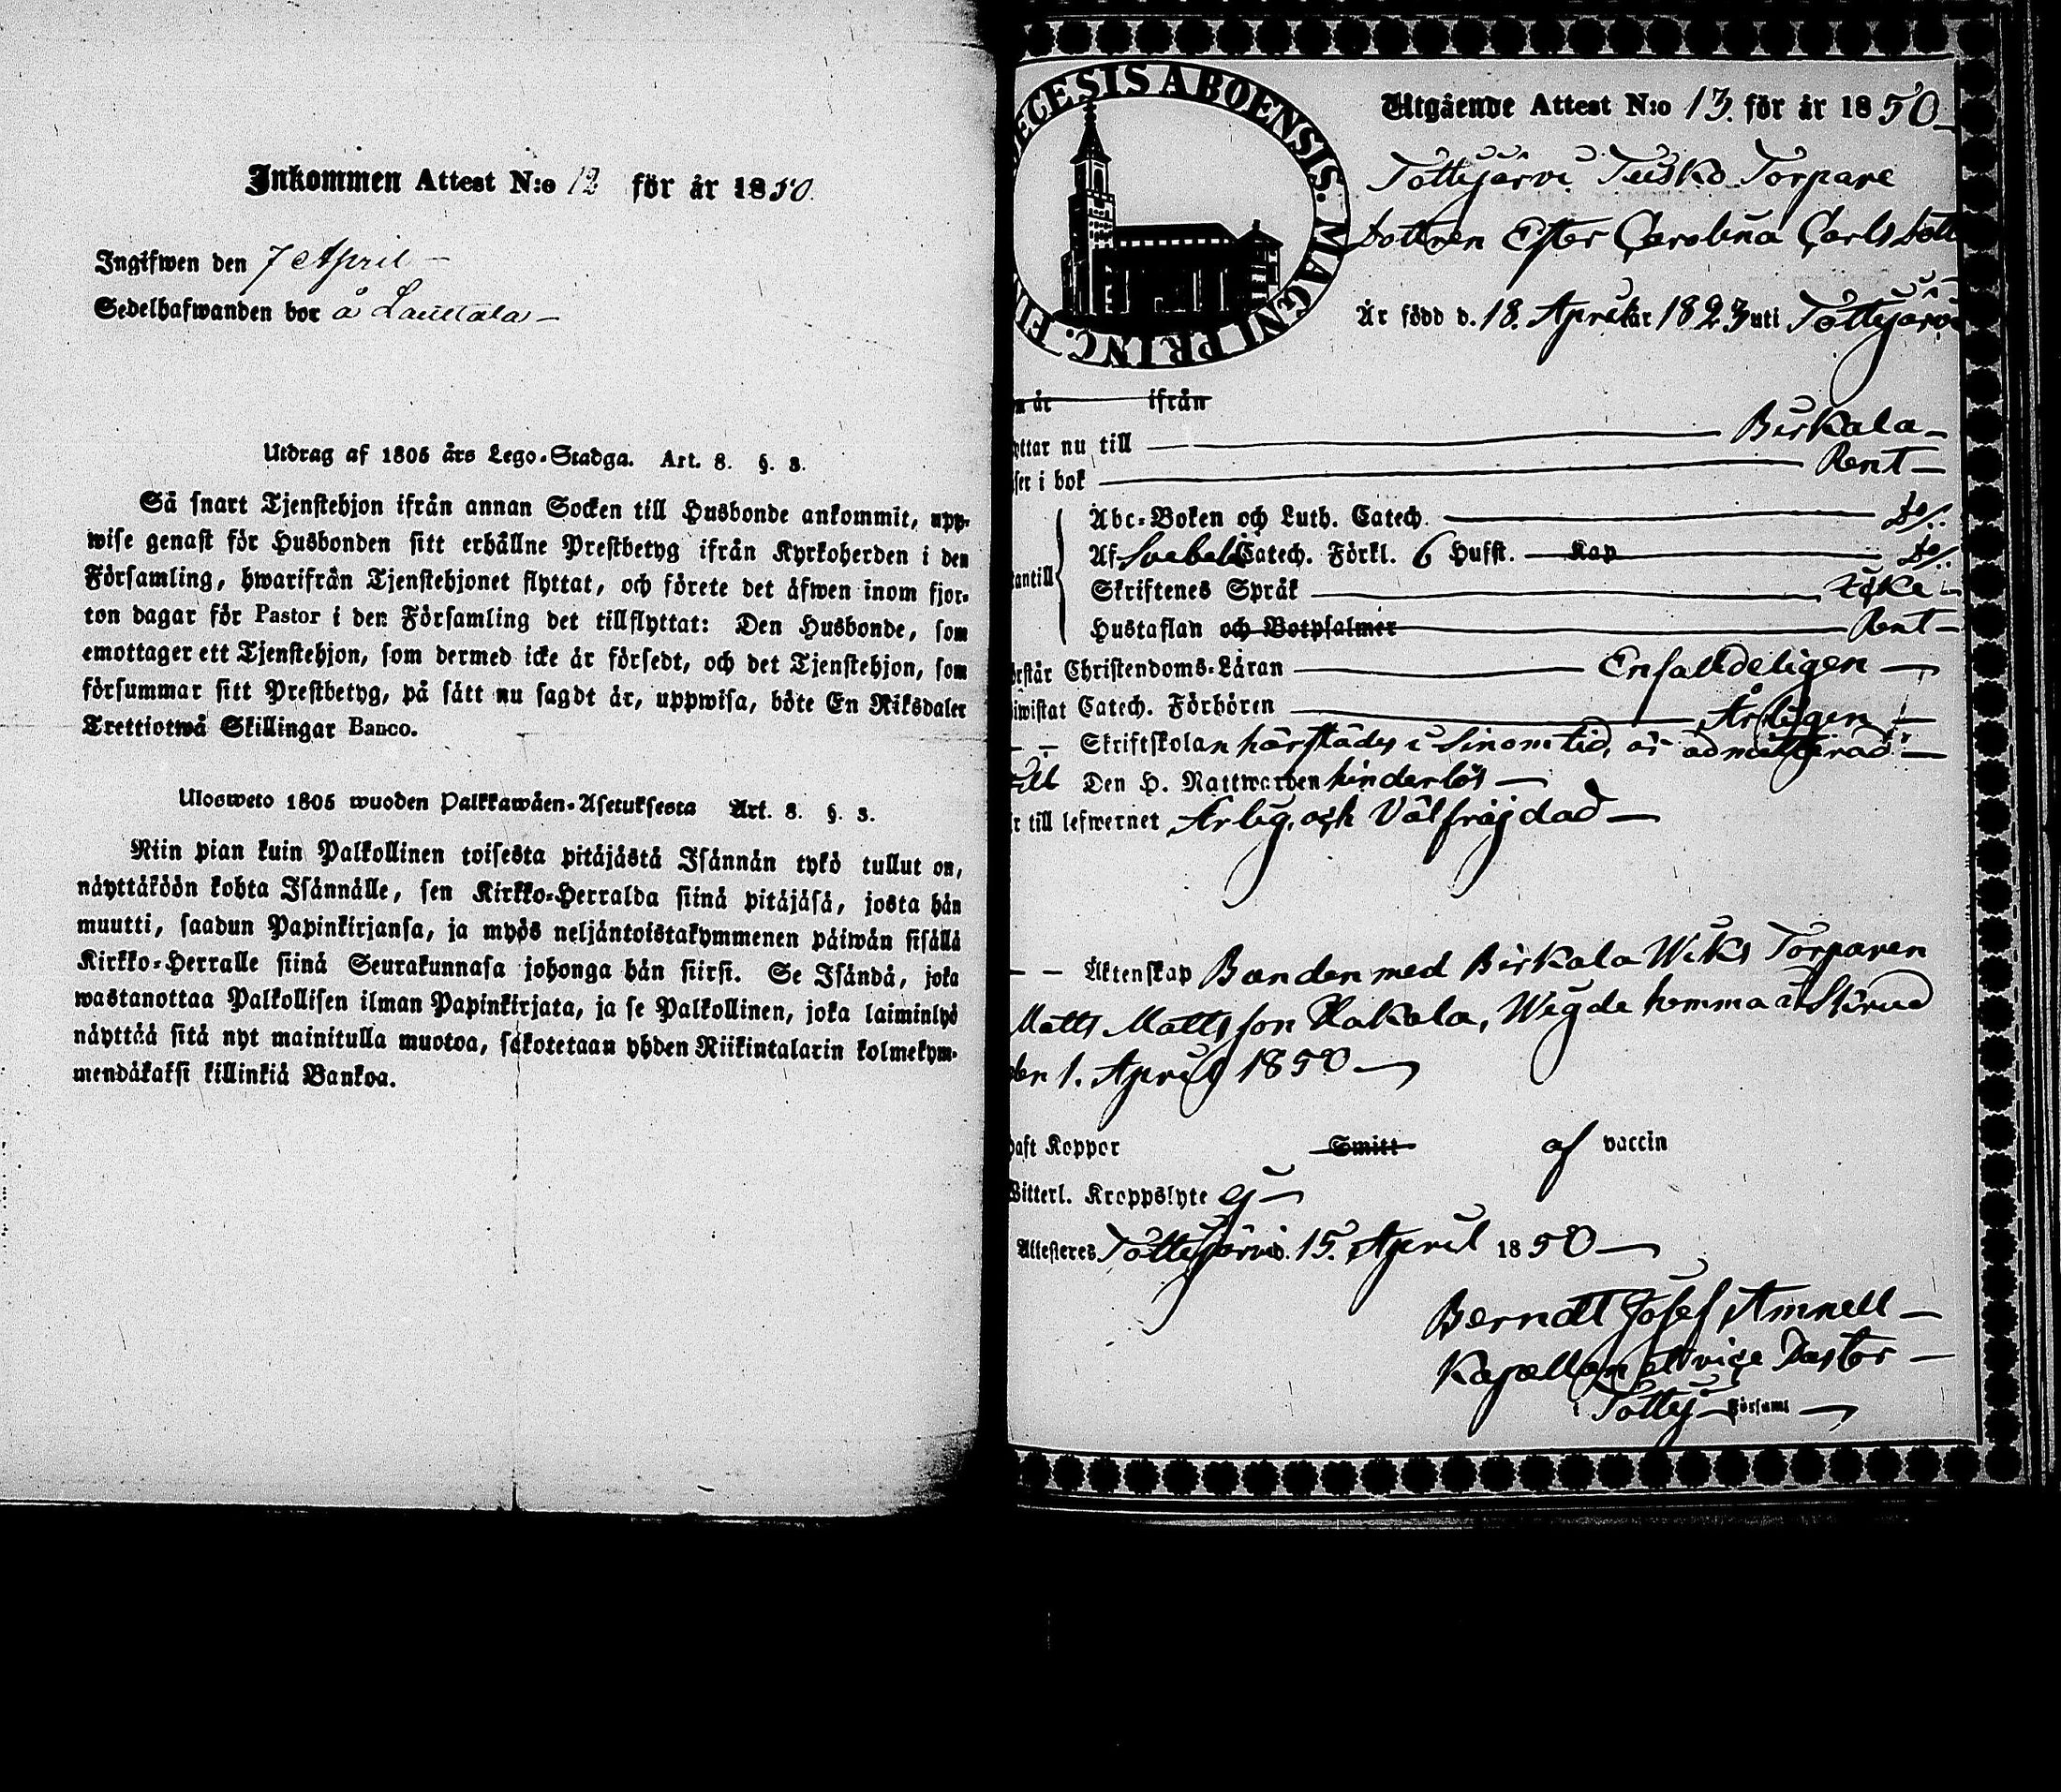 Inkommen Attest N:o 12 för år 1850.
Ingifwen den 7 April –
Sedelhafwanden bor å Lauttala –
Utdrag af 1805 års Lego-Stadga. Art. 8. §. 3.
Så snart Tjenstehjon ifrån annan Socken till Husbonde ankommit, upp-
wise genast för Husbonden sitt erhållne Prestbetyg ifrån Kyrkoherden i den
Församling, hwarifrån Tjenstehjonet flyttat, och förete det äfwen inom fjor-
ton dagar för Pastor i den Församling det tillflyttat: Den Husbonde, som
emottager ett Tjenstehjon, som dermed icke är försedt, och det Tjenstehjon, som
försummar sitt Prestbetyg, på sätt nu sagdt är, uppwisa, böte En Riksdaler
Trettiotwå Skillingar Banco.
Ulosweto 1805 wuoden Palkkawäen-Asetuksesta Art. 8. §. 3.
Niin pian kuin Palkollinen toisesta pitäjästä Isännän tykö tullut on,
näyttäköön kohta Isännälle, sen Kirkko-Herralda siinä pitäjäsä, josta hän
muutti, saadun Papinkirjansa, ja myös neljäntoistakymmenen päiwän sisällä
Kirkko-Herralle siinä Seurakunnasa johonga hän siirsi. Se Isändä, joka
wastanottaa Palkollisen ilman Papinkirjata, ja se Palkollinen, joka laiminlyö
näyttää sitä nyt mainitulla muotoa, sakotetaan yhden Riikintalarin kolmekym-
mendäkaksi killinkiä Bankoa.
ECESIS ABOENSIS. MAGNI PRINC. FI
Utgående Attest N:o 13. för år 1850
Tottijärvi Torpare
Dottren Ester Carolina Carls Dott
Är född d. 18. April år 1823 uti Tottijärvi
n år ifrån
ttar nu till Birkala –
ser i bok Rent –
Abc-Boken och Luth. Catech. Do.
Af Svebeli Catech. Förkl. 6 Hufst. Kap Do.
antill Skriftenes Språk
Hustaflan och Botpsalmer Rent –
rstår Christendoms-Läran Enfalldeligen –
iwistat Catech. Förhören Årligen –
Skriftskolan härstädes i sinom tid, är admitterad –
till Den H. Nattwarden hinderlös –
r till lefwernet Ärlig, och Välfräjdad –
– – Äktenskap Banden med Birkala Wiks Torparen
Matts Mattsson Hakala, Wigde hemma i
den 1. April 1850 –
haft Koppor Smitt af vaccin
Witterl. Kroppslyte ej –
Attesteres Tottijärvi d. 15. April 1850 –
Berndt Josef Amnell –
Kapellan och vice Pastor –
i Tottij Församl –